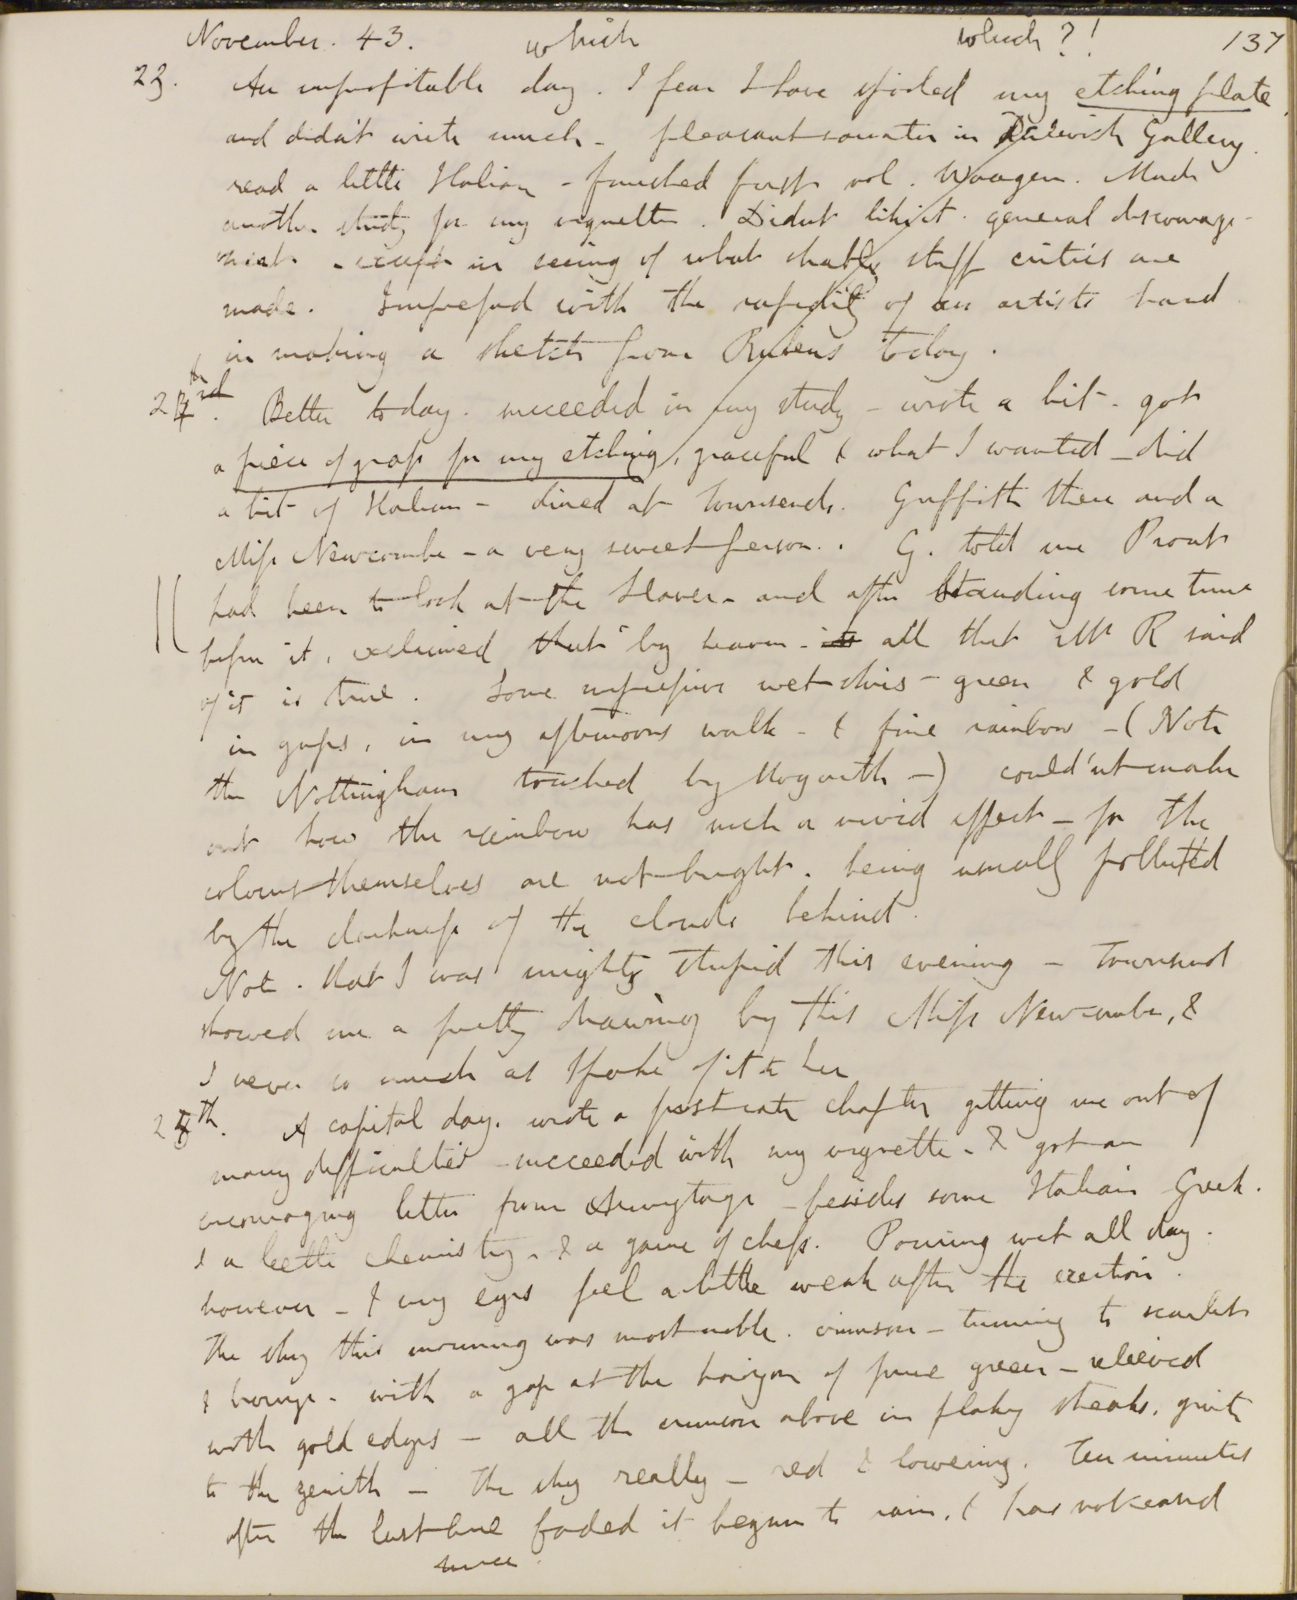 November. 43. which which?! 137
23. An unprofitable day. I fear I have spoiled my etching plate
and didn't write much - pleasant saunter in Dulwich Gallery.
read a little Italian - finished first vol. Waagen. Made
another study for my vignette. Didn't like it. general discourage-
ment - except in seeing of what shabby stuff critics are
made. Impressed with the rapidity of an artists hand
in making a sketch from Rubens today.
24th. Better to day. succeeded in my study - wrote a bit - got
a piece of grass for my etching, graceful & what I wanted - did
a bit of Italian - dined at Townsends. Griffith there and a
Miss Newcombe - a very sweet person. . G. told me Prout
had been to look at the Slaver - and after standing some time
before it, exclaimed that "by heaven - all that Mr R said
of it is true. Some impressive wet skies - green & gold
in gaps, in my afternoons walk - & fine rainbow - (Note
the Nottingham touched by Hogarth -) could'nt make
out how the rainbow has such a vivid effect - for the
colours themselves are not bright. being usually polluted
by the darkness of the clouds behind.
Note. that I was mighty stupid this evening - Townsend
showed me a pretty drawing by this Miss Newcombe, &
I never so much as spoke of it to her
25th. A capital day. wrote a first rate chapter getting me out of
many difficulties - succeeded with my vignette - & got an
encouraging letter from Armytage - besides some Italian Greek.
& a little chemistry. & a game of chess. Pouring wet all day.
however - & my eyes feel a little weak after the exertion.
The sky this morning was most noble. crimson - turning to scarlet
& orange - with a gap at the horizon of pure green - relieved
with gold edges - all the crimson above in flaky streaks, quite
to the zenith - The sky really - red & lowering. Ten minutes
after the last hue faded it began to rain, & has not ceased
since.